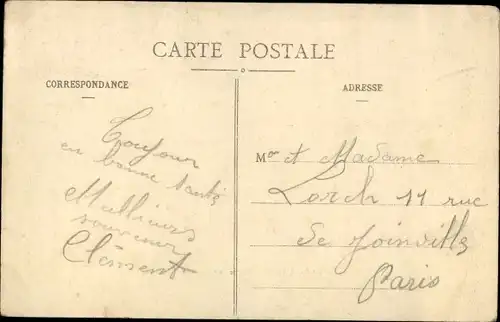 CARTE POSTALE
CORRESPONDANCE
ADRESSE
Toujour
en bonne santé
Meilleurs
souvenir
Clément
Mor et Madame
Lorch 11 rue
de Joinville
Paris